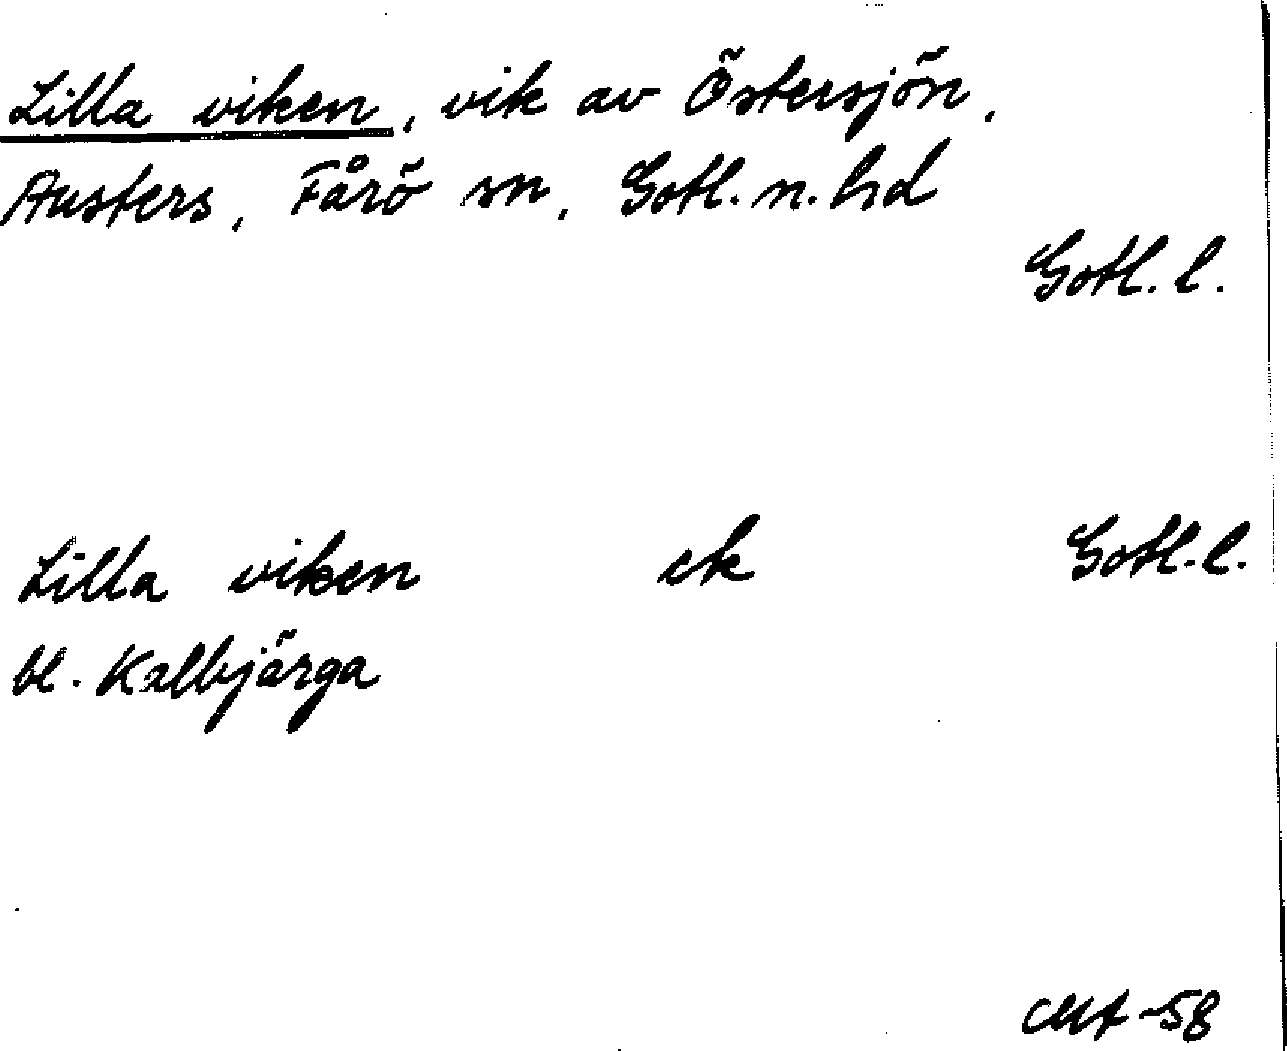 Lilla viken, vik av Östersjön,
Austers, Fårö sn, Gotl. n. hd
Gotl. l.
Lilla viken ek Gotl. l.
bl. Kalbjärga
-58